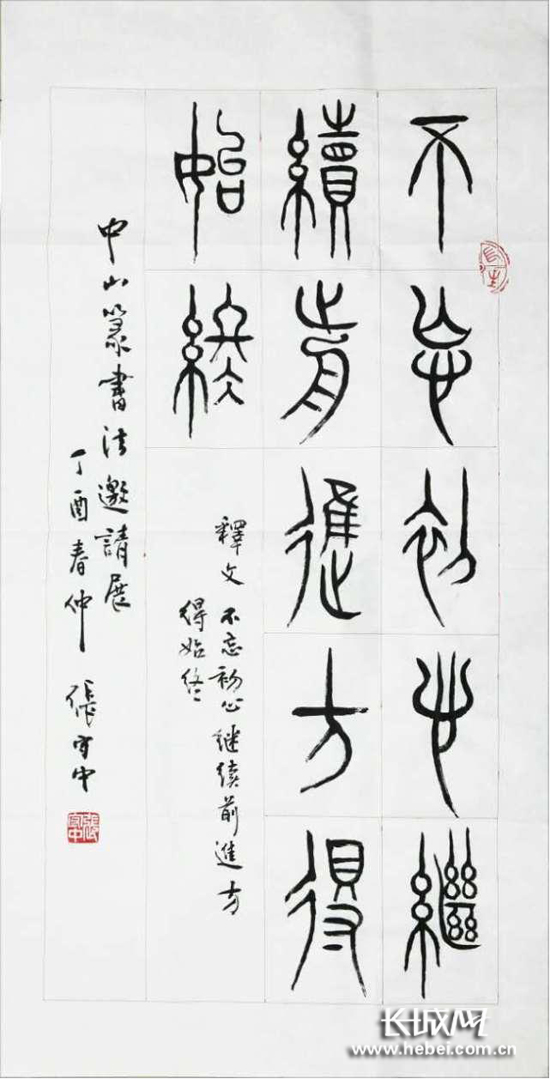 不忘初心繼
續前進方得
始終
釋文 不忘初心繼續前進方
得始終
中山篆書法邀請展
丁酉春仲 張守中
張氏守中
长城网
www.hebei.com.cn